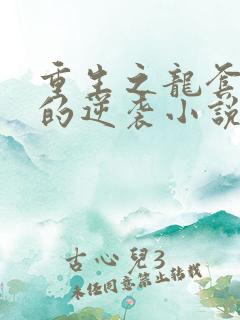 重生之龍套
的逆袭小說
古心兒3
未经同意禁止转载